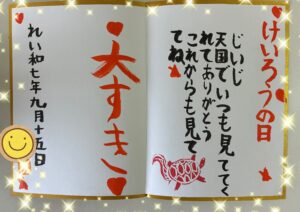 けいろうの日
じいじ
天国でいつも見ててく
れてありがとう
これからも見て
てね
大すき
れい和七年九月十五日